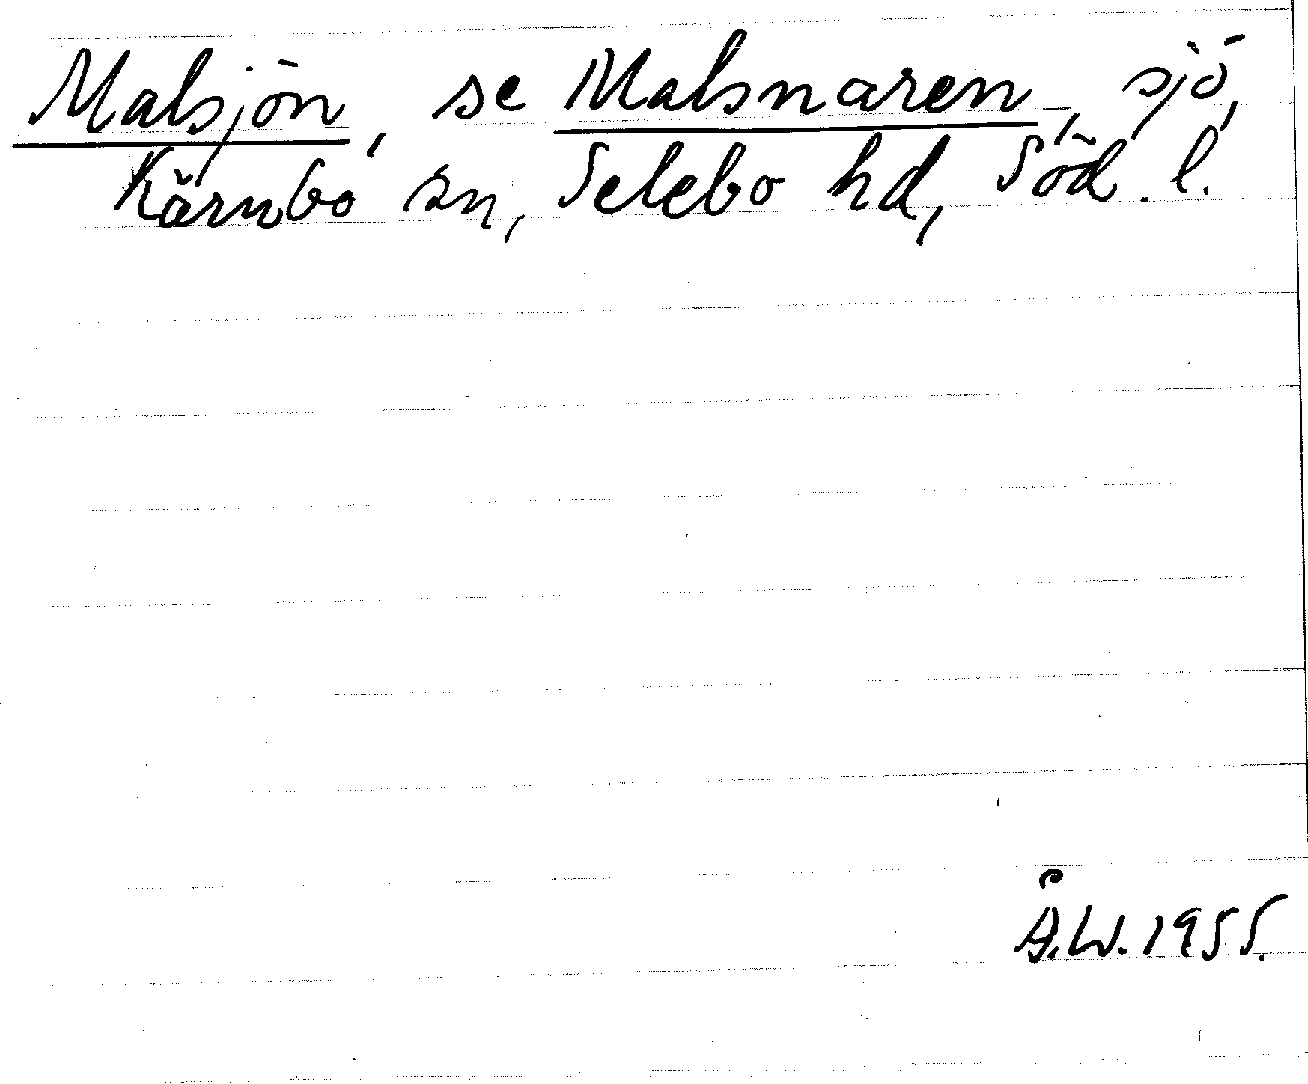 Malsjön, se Malsnaren, sjö,
Kärnbo sn, Selebo hd, Söd. l.
Å.W. 1955.